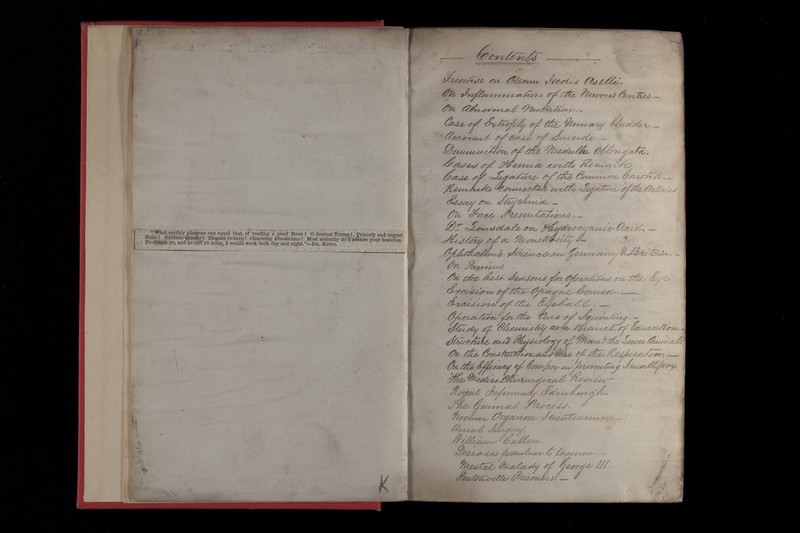 "What earthly pleasure can equal that of reading a good Book? O dearest Tomes! Princely and august
Folios! Sublime Quartos! Elegant Octavos! Charming Duodecimos! Most ardently do I admire your beauties.
To obtain ye, and to call ye mine, I would work both day and night."—DR. KITTO.
K
Contents
Treatise on Oleum Jecoris Aselli.
On Inflammation of the Nervous Centres. —
On Abnormal Nutrition. —
Case of Extrophy of the Urinary bladder. —
Account of case of Suicide. —
of the Medulla Oblongata.
Cases of Hernia with Remarks
Case of Ligature of the Common Carotid. —
Remarks connected with Ligature of the Arteries
Essay on Strychnia. —
On Face Presentations. —
Dr. Lonsdale on Hydrocyanic Acid. —
History of a Monstrosity. —
Ophthalmic Science in Germany & Britain. —
On
On the best Seasons for Operations on the Eye
Excision of the Opaque Cornea. —
Excision of the Eyeball. —
Operation for the Cure of Squinting. —
Study of Chemistry as a Branch of Education. —
Structure and Physiology of Man & the Lower Animals
On the Construction and Use of the Respirator. —
On the Efficacy of Cowpox in preventing Smallpox
The Medico Chirurgical Review
Royal Infirmary Edinburgh.
The Gannal Process.
Novum Organon Scientiarum. —
Aural Surgery.
William Cullen.
Diseases peculiar to Women. —
Mental Malady of George III.
Pentonville Prisoners. —